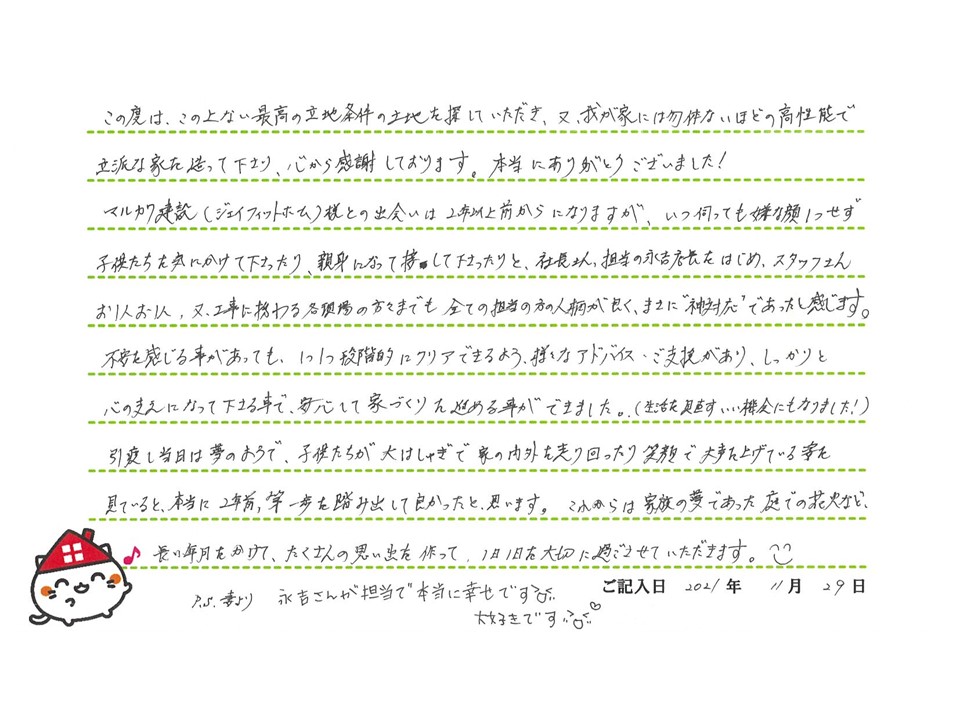 この度は、この上ない最高の立地条件の土地を探していただき、又、我が家には勿体ないほどの高性能で
立派な家を造って下さり、心から感謝しております。本当にありがとうございました!
マルカワ建設(ジェイフィットホーム)様との出会いは2年以上前からになりますが、いつ伺っても嫌な顔1つせず
子供たちを気にかけて下さったり、親身になって接して下さったりと、社長さん、担当の永吉店長をはじめ、スタッフさん
お1人お1人、又、工事に携わる各現場の方々までも全ての担当の方の人柄が良く、まさに"神対応"であったと感じます。
不安を感じる事があっても、1つ1つ段階的にクリアできるよう、様々なアドバイス・ご支援があり、しっかりと
心の支えになって下さる事で、安心して家づくりを進める事ができました。(生活を見直すいい機会にもなりました!)
引越し当日は夢のようで、子供たちが大はしゃぎで家の内外を走り回ったり笑顔で大声を上げている姿を
見ていると、本当に2年前、第一歩を踏み出して良かったと思います。これからは家族の夢であった庭での花火など、
長い年月をかけて、たくさんの思い出を作って、1日1日を大切に過ごさせていただきます。
ご記入日 2021年 11月 29日
P.S. 妻より 永吉さんが担当で本当に幸せです
大好きです